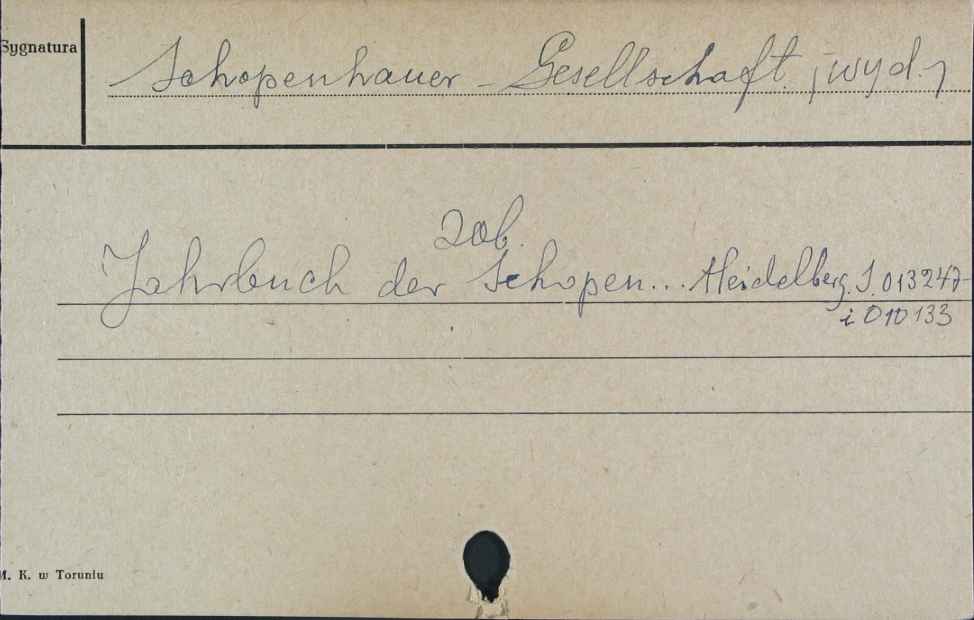 Sygnatura
Schopenhauer - Gesellschaft (wyd.)
Zob.
Jahrbuch der Schopen... Heidelberg. S. 013247
i 010133
M. K. w Toruniu